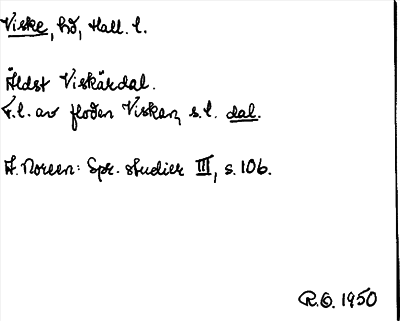 Viske, hd, Hall. l.
Äldst Viskärdal.
F.l. av floden Viskan, s.l. dal.
A. Noreen: Spr. studier III, s. 106.
R.O. 1950